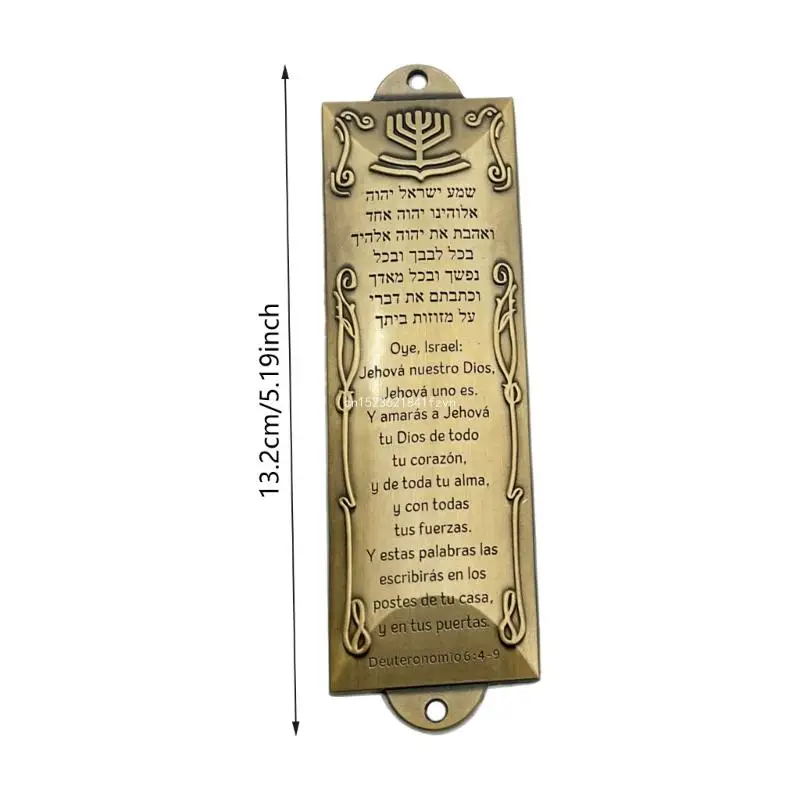 13.2cm/5.19inch
שמע ישראל יהוה
אלוהינו יהוה אחד
ואהבת את יהוה אלהיך
בכל לבבך ובכל
נפשך ובכל מאדך
וכתבתם את דברי
על מזוזות ביתך
Oye, Israel:
Jehová nuestro Dios,
Jehová uno es.
Y amarás a Jehová
tu Dios de todo
tu corazón,
y de toda tu alma,
y con todas
tus fuerzas.
Y estas palabras las
escribirás en los
postes de tu casa,
y en tus puertas.
Deuteronomio 6:4-9